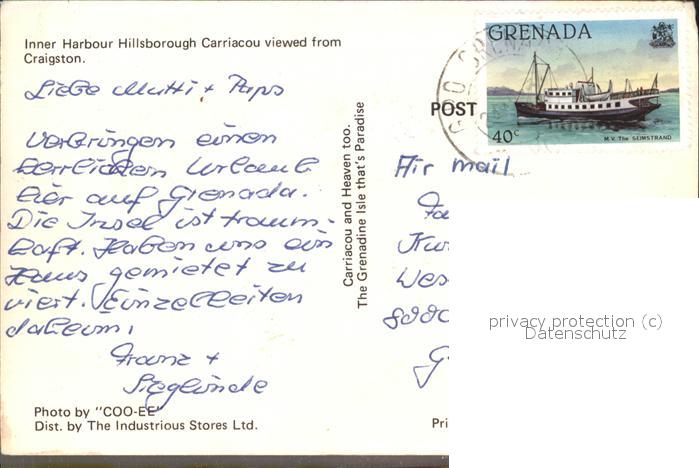 Inner Harbour Hillsborough Carriacou viewed from
Craigston.
Liebe Mutti + Paps
Verbringen einen
herrlichen Urlaub
hier auf Grenada.
Die Insel ist traum-
haft. Haben uns ein
Haus gemietet zu
viert. Einzelheiten
daheim.
Franz +
Sieglinde
Photo by "COO-EE"
Dist. by The Industrious Stores Ltd.
Carriacou and Heaven too.
The Grenadine Isle that's Paradise
GRENADA
40c
M.V. The SEIMSTRAND
POST
Air mail
Wes
Pri
privacy protection (c)
Datenschutz